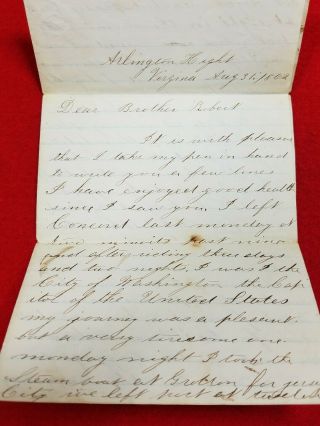 Arlington Hight
Virginia Aug 31, 1862
Dear Brother Robert
It is with pleasure
that I take my pen in hand
to write you a few lines
I have enjoyed good health
since I saw you I left
Concord last monday at
five minuits past nine
and after riding three days
and two night. I was I the
City of Washington the Cap
itol of the United States
my journey was a pleasant
but a very tiresome one
monday night I took the
Steam boat at Groton for jersey
City we left just at